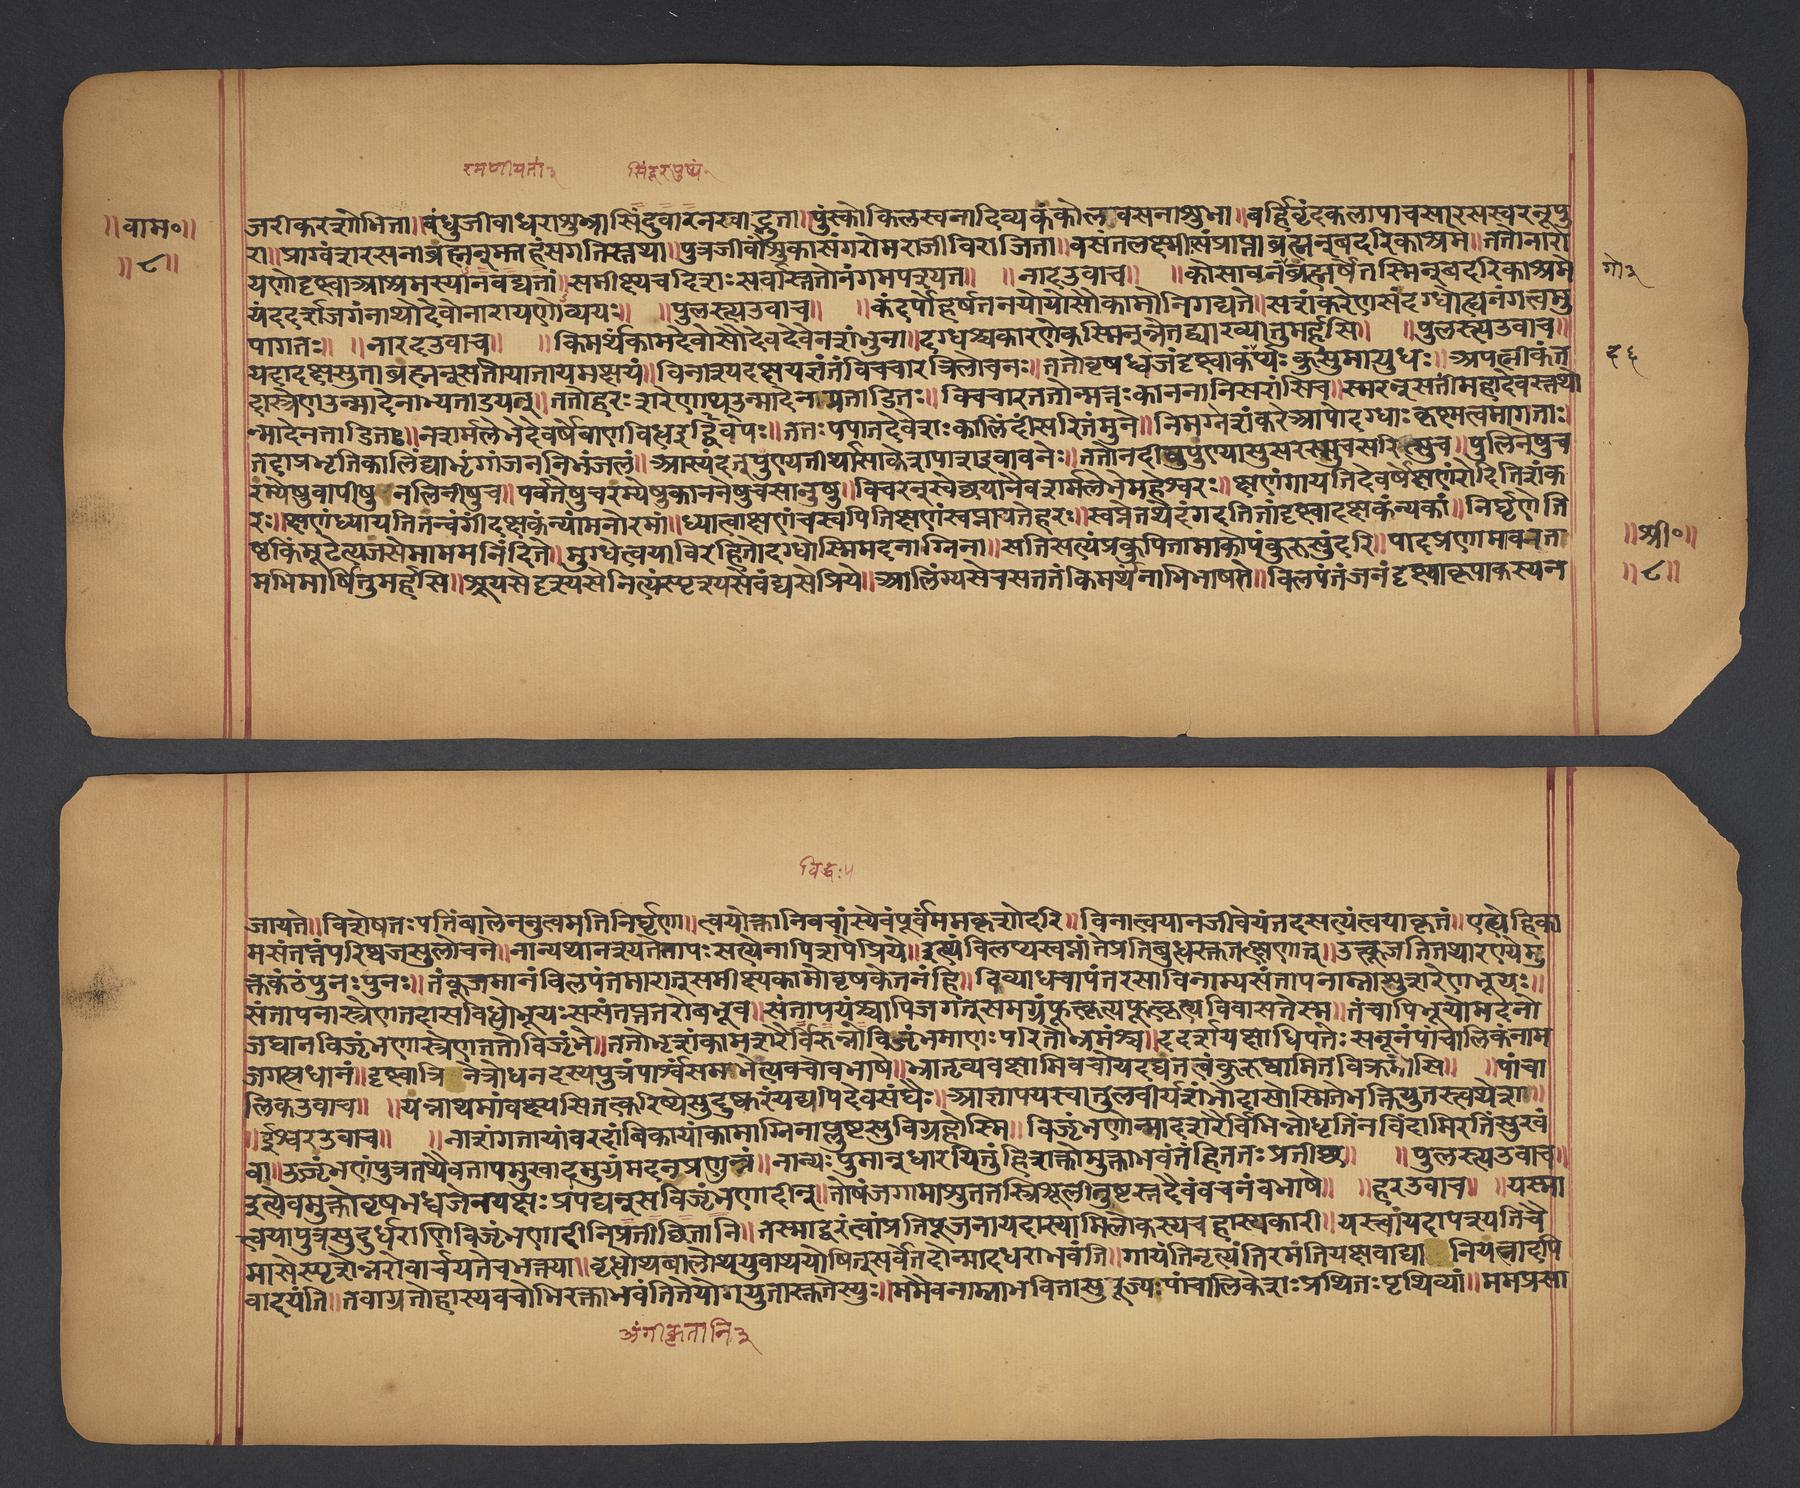 रमणीयतां३ सिंदूरपुष्पं
॥वाम०॥
॥८॥
जरीकरशोभिता॥बंधुजीवाधराशुभ्रासिंदुवारनखाद्भुता॥पुंस्कोकिलस्वनादिव्यकंकोलवसनाशुभा॥बर्हिवृंदकलापाचसारसस्वरनूपु
रा॥प्राग्वंशरसनाब्रह्मन्मत्तहंसगतिस्तथा॥पुत्रजीवांशुकासंगरोमराजीविराजिता॥वसंतलक्ष्मीःसंप्राप्ताब्रह्मन्बदरिकाश्रमे॥ततोनारा
यणोदृष्ट्वाआश्रमस्यानवद्यतां॥समीक्ष्यचदिशःसर्वास्ततोनंगमपश्यत॥ ॥नारदउवाच॥ ॥कोसावनंगोब्रह्मर्षेतस्मिन्बदरिकाश्रमे
यंददर्शजगंनाथोदेवोनारायणोव्ययः॥ ॥पुलस्त्यउवाच॥ ॥कंदर्पोहर्षतनयोयोसौकामोनिगद्यते॥सशंकरेणसंदग्धोह्यनंगत्वमु
पागतः॥ ॥नारदउवाच॥ ॥किमर्थंकामदेवोसौदेवदेवेनशंभुना॥दग्धश्चकारणेकस्मिन्नेतद्व्याख्यातुमर्हसि॥ ॥पुलस्त्यउवाच॥
यदादक्षसुताब्रह्मन्सतीयातायमक्षयं॥विनाश्यदक्षयज्ञंतंविचचारत्रिलोचनः॥ततोवृषध्वजंदृष्ट्वाकंदर्पःकुसुमायुधः॥अपत्नीकंत
दास्त्रेणउन्मादेनाभ्यताडयत्॥ततोहरःशरेणाथउन्मादेनाशुताडितः॥विचचारततोन्मत्तःकाननानिसरांसिच॥स्मरन्सतीमहादेवस्तथो
न्मादेनताडितः॥नशर्मलेभेदेवर्षेबाणविद्धइवद्विपः॥ततःपपातदेवेशःकालिंदींसरितंमुने॥निमग्नेशंकरेआपोदग्धाःकृष्णत्वमागताः॥
तदाप्रभृतिकालिंद्याभृंगांजननिभंजलं॥आस्यंदत्पुण्यतीर्थासाकेशपाशइवावनेः॥ततोनदीषुपुण्यासुसरस्सुचसरित्सुच॥पुलिनेषुच
रम्येषुवापीषुनलिनीषुच॥पर्वतेषुचरम्येषुकाननेषुचसानुषु॥विचरन्स्वेच्छयानैवशर्मलेभेमहेश्वरः॥क्षणंगायतिदेवर्षेक्षणंरोदितिशंक
रः॥क्षणंध्यायतितन्वंगींदक्षकंन्यांमनोरमां॥ध्यात्वाक्षणंचस्वपितिक्षणंस्वप्नायतेहरः॥स्वप्नेतथेदंगदतितांदृष्ट्वादक्षकंन्यकां॥निर्घृणेति
ष्ठकिंमूढेत्यजसेमाममनिंदिते॥मुग्धेत्वयाविरहितोदग्धोस्मिमदनाग्निना॥सतिसत्यंप्रकुपितामाकोपंकुरुसुंदरि॥पादप्रणामावनता
मभिभाषितुमर्हसि॥श्रूयसेदृश्यसेनित्यंस्पृश्यसेवंद्यसेप्रिये॥आलिंग्यसेचसततंकिमर्थंनाभिभाषसे॥विलपंतंजनंदृष्ट्वाकृपाकस्यन
गो३
द६
॥श्री०॥
॥८॥
विद्धः५
जायते॥विशेषतःपतिंबालेननुत्वमतिनिर्घृणा॥त्वयोक्तानिवचांस्येवंपूर्वंममकृशोदरि॥विनात्वयानजीवेयंतदसत्यंत्वयाकृतं॥एह्येहिका
मसंतप्तंपरिष्वजसुलोचने॥नान्यथानश्यतेतापःसत्येनापिशपेप्रिये॥इत्थंविलप्यस्वप्नांतेप्रतिबुधस्तत्क्षणात्॥उत्कूजतितथारण्येमु
क्तकंठंपुनःपुनः॥तंकूजमानंविलपंतमारात्समीक्ष्यकामोवृषकेतनंहि॥विव्याधचापंतरसाविनाम्यसंतापनाम्नाशुशरेणभूयः॥
संतापनास्त्रेणतदासविद्धोभूयःससंतप्ततरोबभूव॥संतापयंश्चापिजगत्समग्रंफूत्कृत्यफूत्कृत्यविवासतेस्म॥तंचापिभूयोमदनो
जघानविजृंभणास्त्रेणततोविजृंभे॥ततोभृशंकामशरैर्विरुन्नोविजृंभमाणःपरितोभ्रमंश्च॥ददर्शयक्षाधिपतेःसनूनंपांचालिकंनाम
जगत्प्रधानं॥दृष्ट्वात्रिनेत्रोधनदस्यपुत्रंपार्श्वंसमभ्येत्यवचोबभाषे॥भ्रातृव्यवक्ष्यामिवचोयदद्यतत्त्वंकुरुष्वामितविक्रमोसि॥ ॥पांचा
लिकउवाच॥ ॥यन्नाथमांवक्ष्यसितत्करिष्येसुदुष्करंयद्यपिदेवसंघैः॥आज्ञापयस्वातुलवीर्यशंभोदासोस्मितेभक्तियुतस्त्वथेश॥
॥ईश्वरउवाच॥ ॥नाशंगतायांवरदांबिकायांकामाग्निनाप्लुष्टसुविग्रहोस्मि॥विजृंभणोन्मादशरैर्विभिन्नोधृतिंनविंदामिरतिंसुखं
वा॥उज्जृंभणंपुत्रतथैवतापमुन्मादमुग्रंमदनप्रणुन्नं॥नान्यःपुमान्धारयितुंहिशक्तोमुक्त्वाभवंतंहिततःप्रतीच्छ॥ ॥पुलस्त्यउवाच॥
इत्येवमुक्तोवृषभध्वजेनयक्षःप्रपद्यत्सविजृंभणादीन्॥तोषंजगामाशुततस्त्रिशूलीतुष्टस्तदैवंवचनंबभाषे॥ ॥हरउवाच॥ ॥यस्मा
त्त्वयापुत्रसुदुर्धराणिविजृंभणादीनिप्रतीच्छितानि॥तस्माद्वरंत्वांप्रतिपूजनायदास्यामिलोकस्यचहास्यकारी॥यस्त्वांयदापश्यतिचै
मासेस्पृशेन्नरोवार्चयतेचभक्त्या॥वृद्धोथबालोथयुवाथयोषित्सर्वेतदोन्मादधराभवंति॥गायंतिनृत्यंतिरमंतियक्षवाद्यानियत्नादपि
वादयंति॥तवाग्रतोहास्यवचोभिरक्ताभवंतितेयोगयुतास्तुतेस्युः॥ममैवनाम्नाभवितासुपूज्यःपांचालिकेशःप्रथितःपृथिव्यां॥ममप्रसा
अंगीकृतानि३